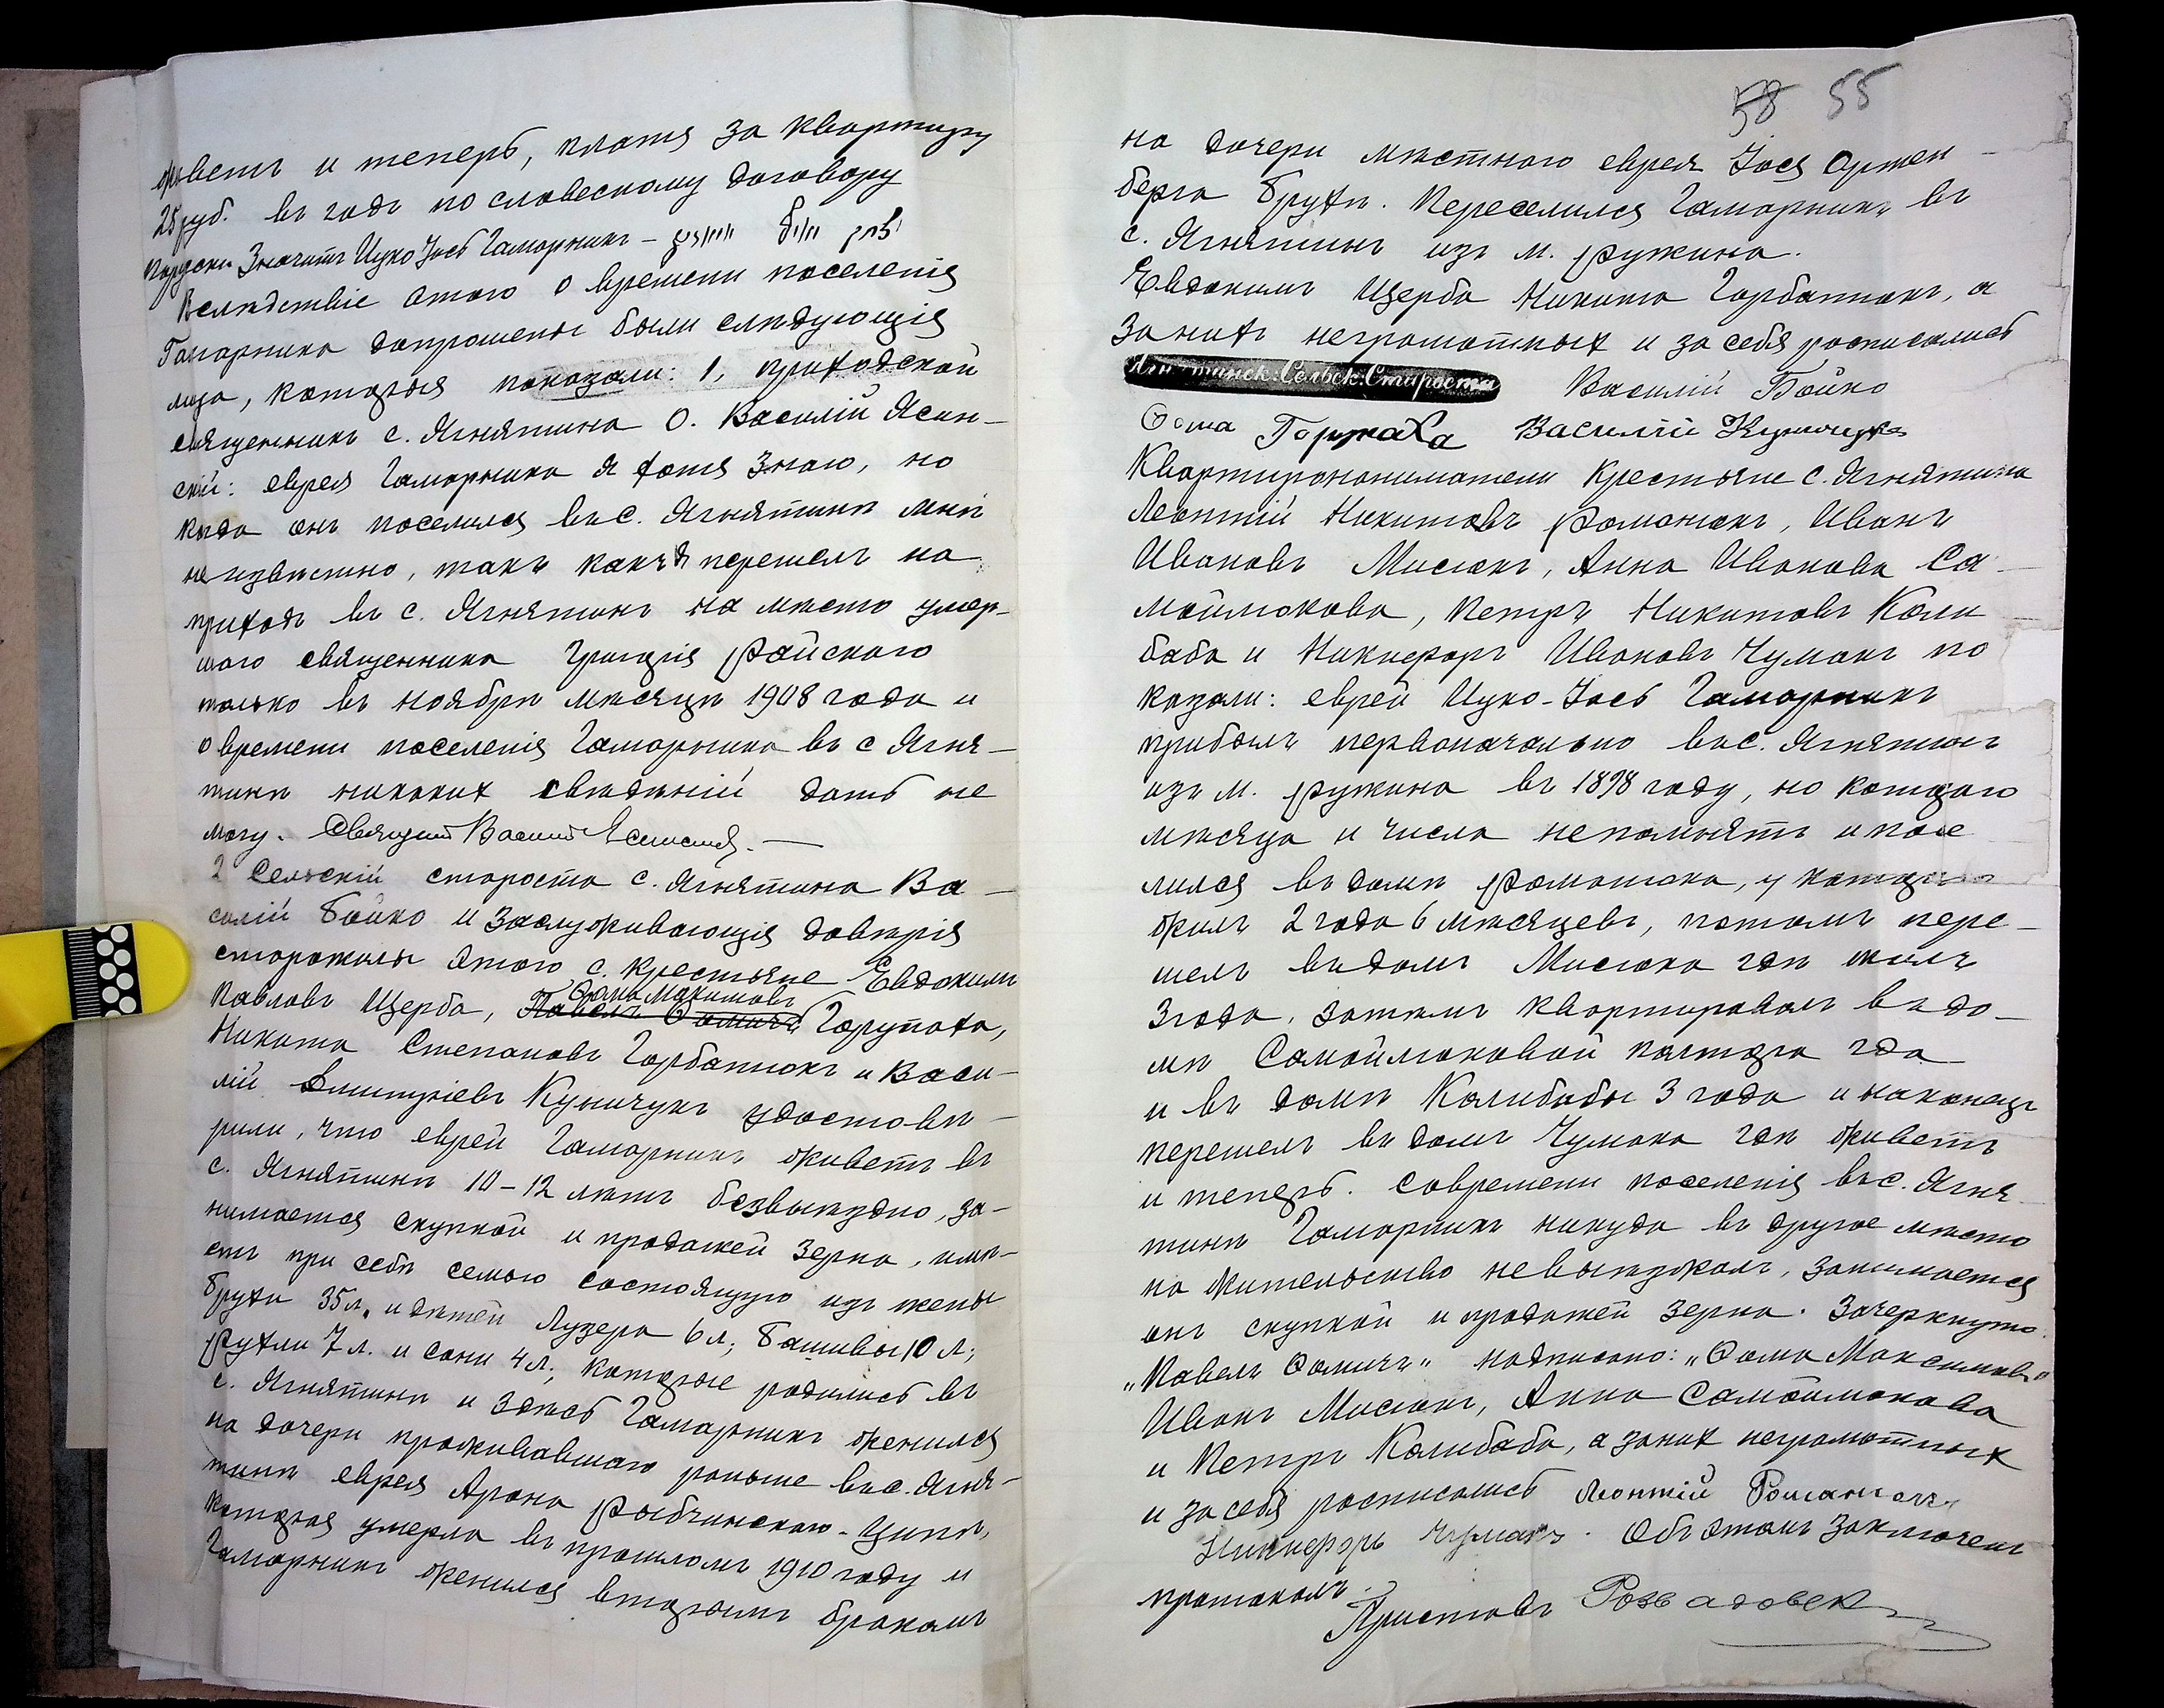 живетъ и теперь, платя за квартиру
25 руб. въ годъ по словесному договору
Значитъ Ицко Іось Гаморникъ –
Вслѣдствіе этого о времени поселенія
Гаморника допрошены были слѣдующія
лица, которыя показали: 1, приходской
священникъ с. Ягнятина О. Василій Ясин-
скій: еврея Гаморника я хотя знаю, но
когда онъ поселился въ с. Ягнятинѣ мнѣ
неизвѣстно, такъ какъ я перешелъ на
приходъ въ с. Ягнятинъ на мѣсто умер-
шаго священника Григорія Райскаго
только въ ноябрѣ мѣсяцѣ 1908 года и
о времени поселенія Гаморника въ с Ягня-
тинѣ никакихъ свѣдѣній дать не
могу. Священ Василій Ясинскій. —
2 Сельскій староста с. Ягнятина Ва-
силій Бойко и заслуживающія довѣрія
старожилы этого с. крестьяне Евдокимъ
Ѳома Максимовъ
Павловъ Щерба, Павелъ Ѳомичъ Горупаха,
Никита Степановъ Горбатюкъ и Васи-
лій Дмитріевъ Куничукъ удостовѣ-
рили, что еврей Гаморникъ живетъ въ
с. Ягнятинѣ 10-12 лѣтъ безвыѣздно, за-
нимается скупкой и продажей зерна, имѣ-
етъ при себѣ семью состоящую изъ жены
Брухи 35 л. и дѣтей Лузера 6 л; Башивы 10 л;
Рухли 7 л. и Сони 4 л; которые родились въ
с. Ягнятинѣ и здѣсь Гаморникъ женился
на дочери проживавшаго раньше въ с. Ягня-
тинѣ еврея Арона Рыбчинскаго - Ципѣ,
которая умерла въ прошломъ 1910 году и
Гаморникъ женился вторымъ бракомъ
58 55
на дочери мѣстнаго еврея Іося Ортен-
берга Брухѣ. Переселился Гаморникъ въ
с. Ягнятинъ изъ м. Ружина.
Евдокимъ Щерба Никита Горбатюкъ, а
за нихъ неграмотныхъ и за себя росписались
Ягнятинск. Сельск. Староста Василій Бойко
Ѳома Василій Куничукъ
Квартиронаниматели крестьяне с. Ягнятина
Леонтій Никитовъ Романюкъ, Иванъ
Ивановъ Мисюкъ, Анна Иванова Са-
мойлюкова, Петръ Никитовъ Коли
баба и Никифоръ Ивановъ Чумакъ по
казали: еврей Ицко-Іось Гаморникъ
прибылъ первоначально въ с. Ягнятинъ
изъ м. Ружина въ 1898 году, но котораго
мѣсяца и числа не помнятъ и посе
лился въ домѣ Романюка, у котораго
жилъ 2 года 6 мѣсяцевъ, потомъ пере-
шелъ въ домъ Мисюка гдѣ жилъ
3 года, затѣмъ квартировалъ въ до-
мѣ Самойлюковой полтора года
и въ домѣ Колибабы 3 года и наконецъ
перешелъ въ домъ Чумака гдѣ живетъ
и теперь. Со времени поселенія въ с. Ягня-
тинѣ Гаморникъ никуда въ другое мѣсто
на жительство не выѣзжалъ, занимается
онъ скупкой и продажей зерна. Зачеркнуто
„Павелъ Ѳомичъ" надписано: „Ѳома Максимовъ"
Иванъ Мисюкъ, Анна Самойлюкова
и Петръ Колибаба, а за нихъ неграмотныхъ
и за себя росписались Леонтій Романюкъ
Никифоръ Чумакъ. Объ этомъ заключенъ
протоколъ.
Приставъ Розвадовск